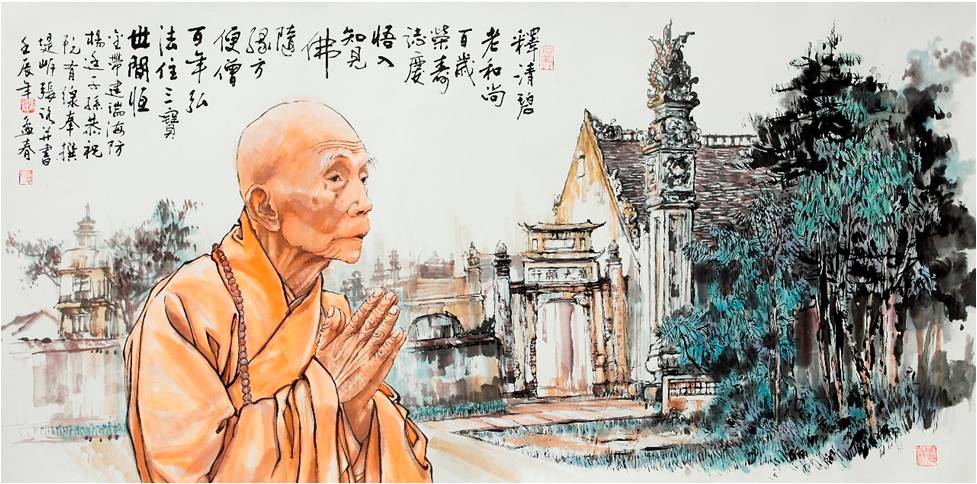 釋清碧
老和尚
百歲
榮壽
誌慶
悟入
知見
佛
隨
緣方
便僧
百年弘
法住三寶
世間恒
金帶建瑞海防
楊進子孫恭祝
阮有緣奉撰
堤岸張路并書
壬辰年孟春
廣大願行